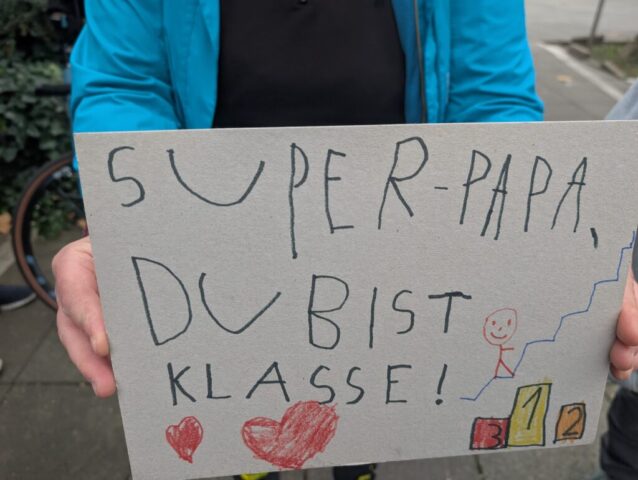 SUPER-PAPA,
DU BIST
KLASSE!
3 1 2